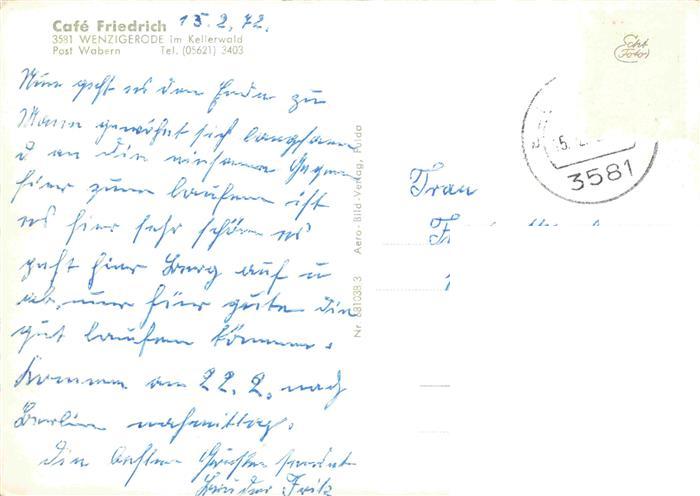 Café Friedrich
3581 WENZIGERODE im Kellerwald
Post Wabern Tel. (05621) 3403
15.2.72.
Nun geht es dem Ende zu
Mann gewöhnt sich langsam
u an die einsame Gegend
hier zum laufen ist
es hier sehr schön es
geht hier Berg auf u
ab, nur für gute die
gut laufen können.
Komme am 22.2. nach
Berlin nachmittag.
Die besten Grüße sendet
Bruder Fritz
Nr 681038.3 Aero-Bild-Verlag, Fulda
Echt Foto
3581
Frau